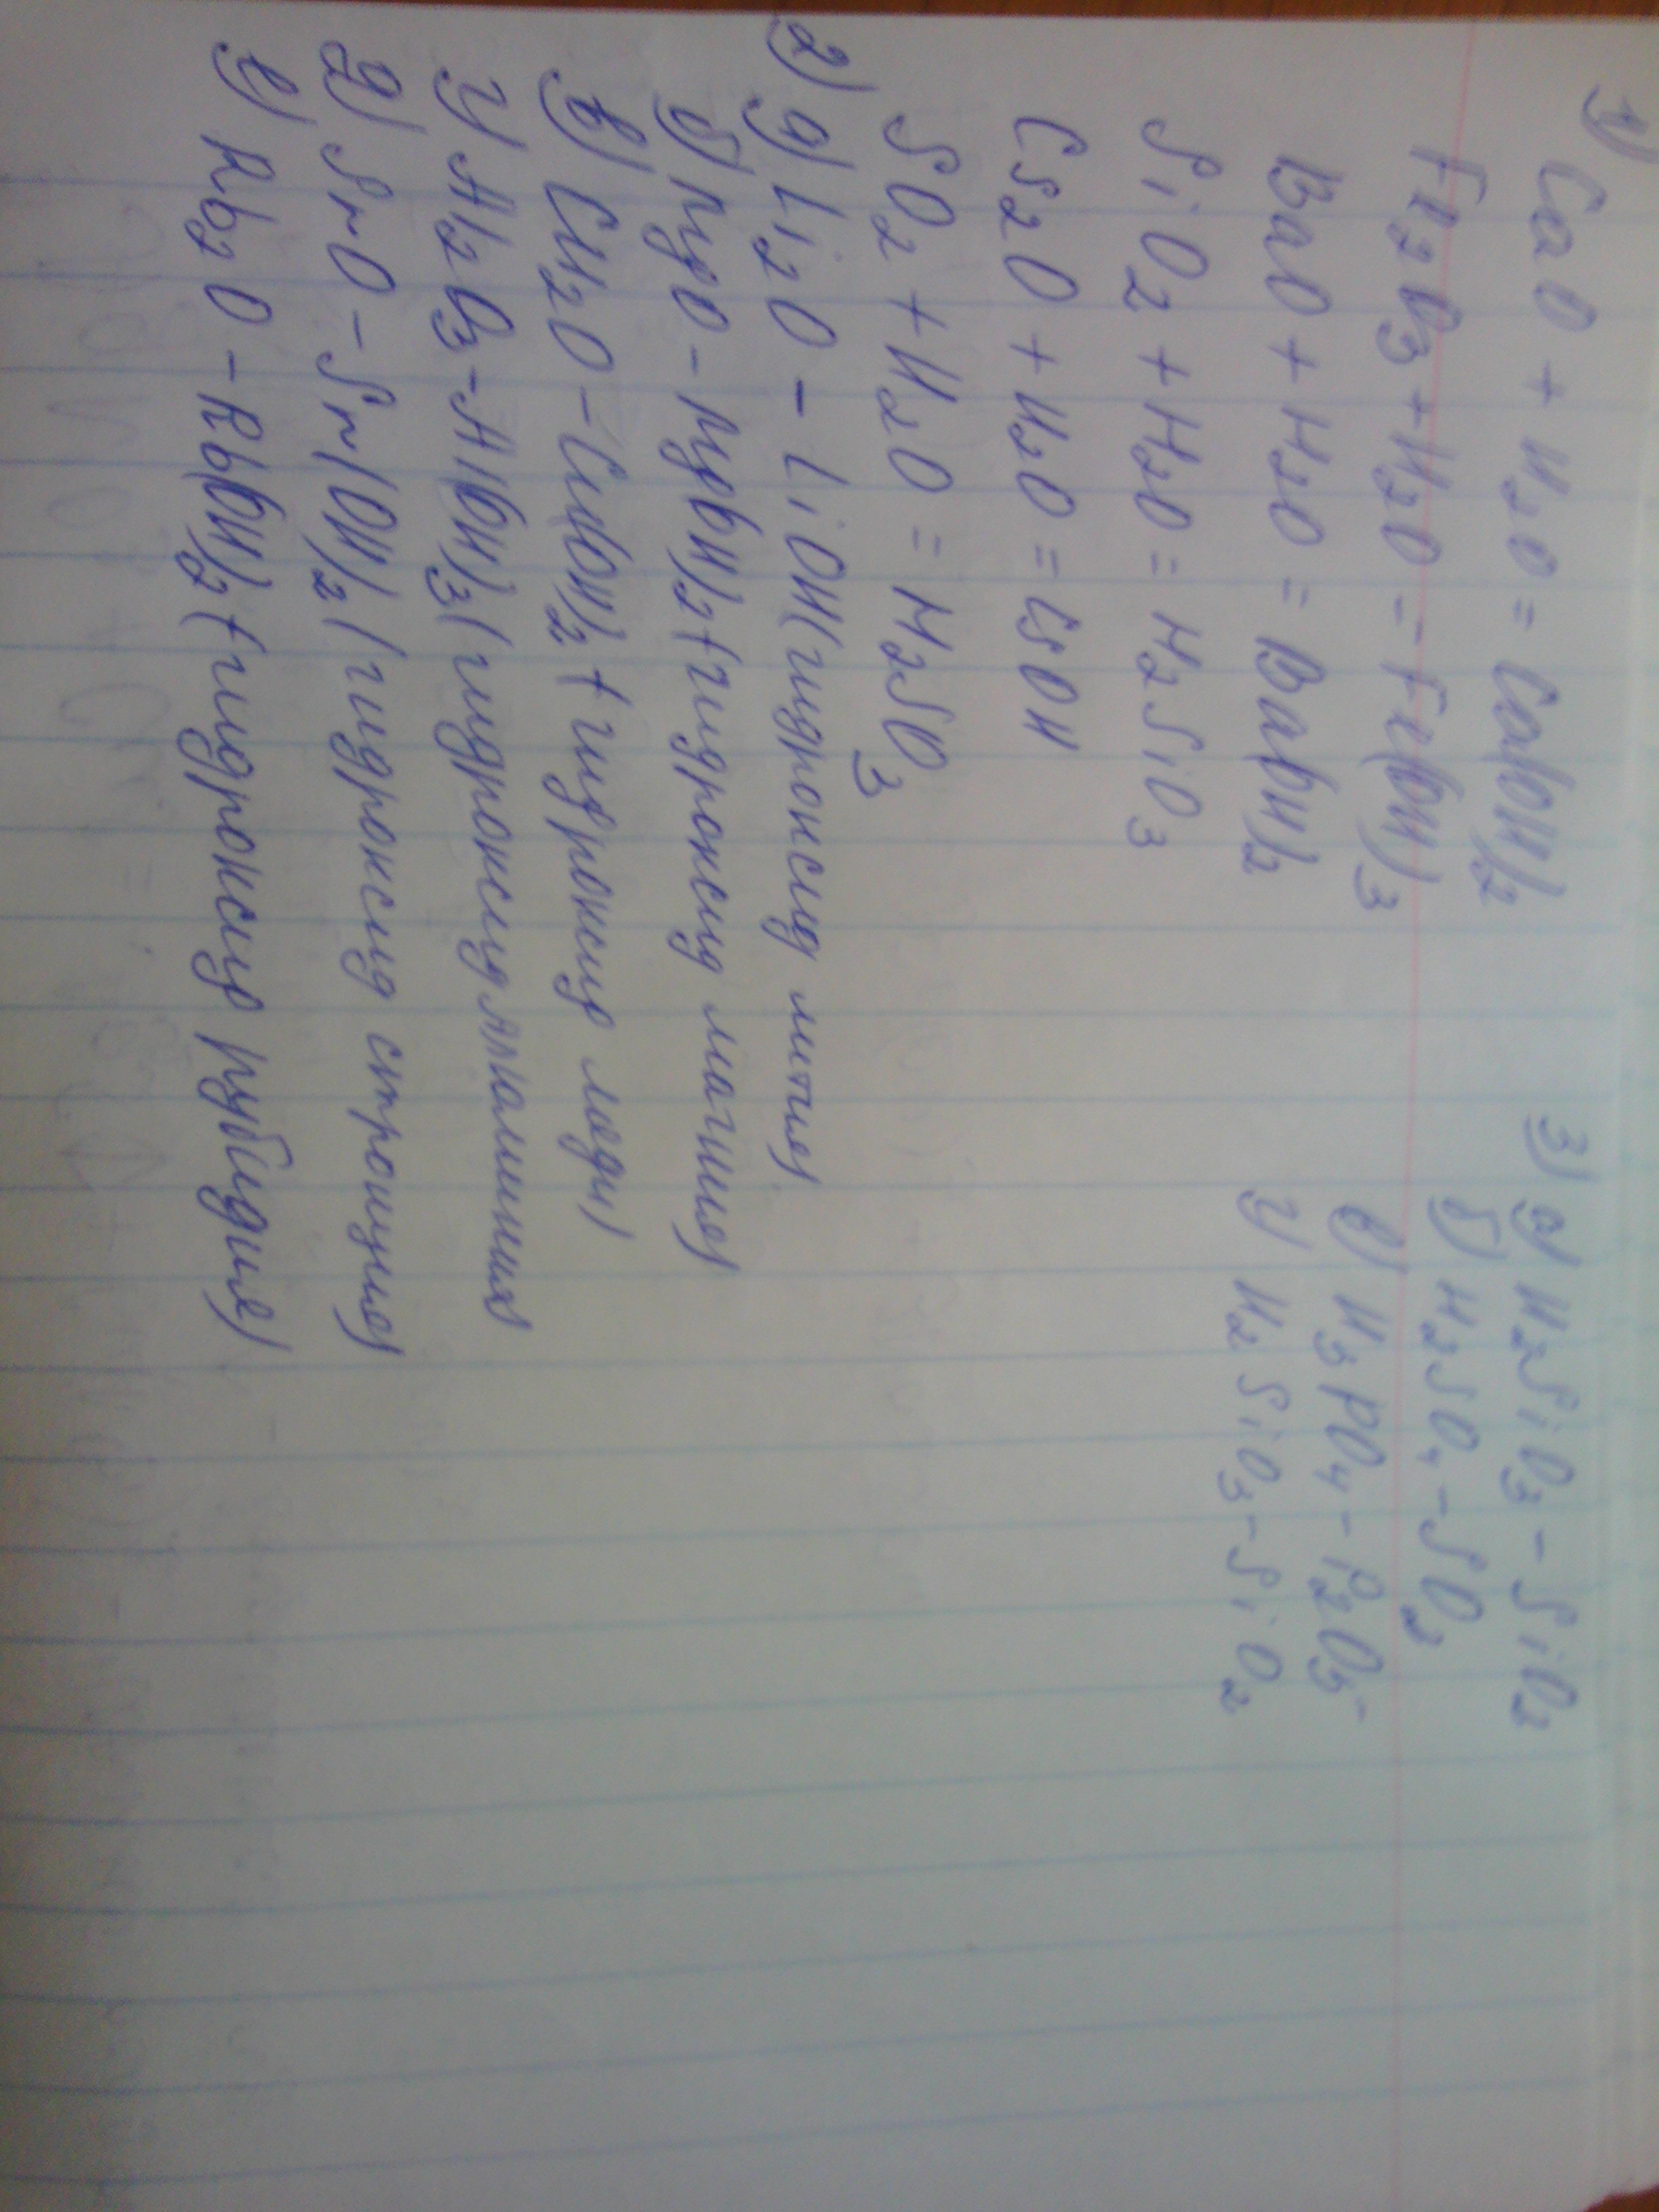 1) CaO + H2O = Ca(OH)2
Fe2O3 + H2O = Fe(OH)3
BaO + H2O = Ba(OH)2
SiO2 + H2O = H2SiO3
Cs2O + H2O = CsOH
SO2 + H2O = H2SO3
2) а) Li2O - LiOH (гидроксид лития)
б) MgO - Mg(OH)2 (гидроксид магния)
в) Cu2O - Cu(OH)2 (гидроксид меди)
г) Al2O3 - Al(OH)3 (гидроксид алюминия)
д) SrO - Sr(OH)2 (гидроксид стронция)
е) Rb2O - Rb(OH)2 (гидроксид рубидия)
3) а) H2SiO3 - SiO2
б) H2SO4 - SO2
в) H3PO4 - P2O5
г) H2SiO3 - SiO2